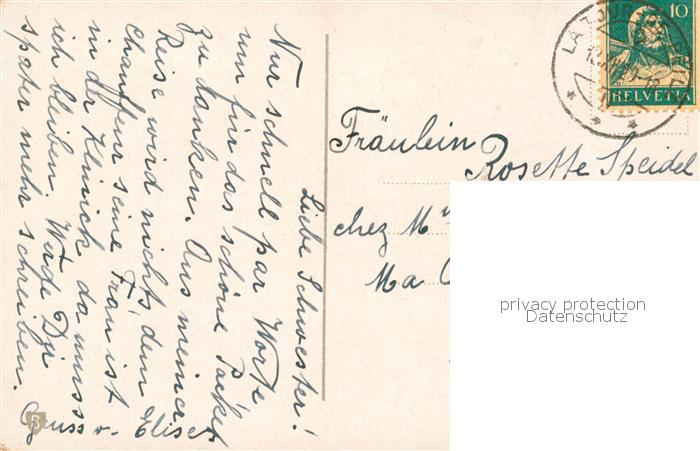 Liebe Schwester!
Nur schnell par Worte
um für das schöne Päcket
zu danken. Aus meiner
Reise wird nichts dem
Chauffeur seine Frau ist
in der Klinick da muss
ich bleiben. Werde Dir
später mehr schreiben.
Gruss v. Elise
Fräulein
Rosette Speidel
chez M
Ma
10
HELVETIA
LA TOUR
privacy protection
Datenschutz